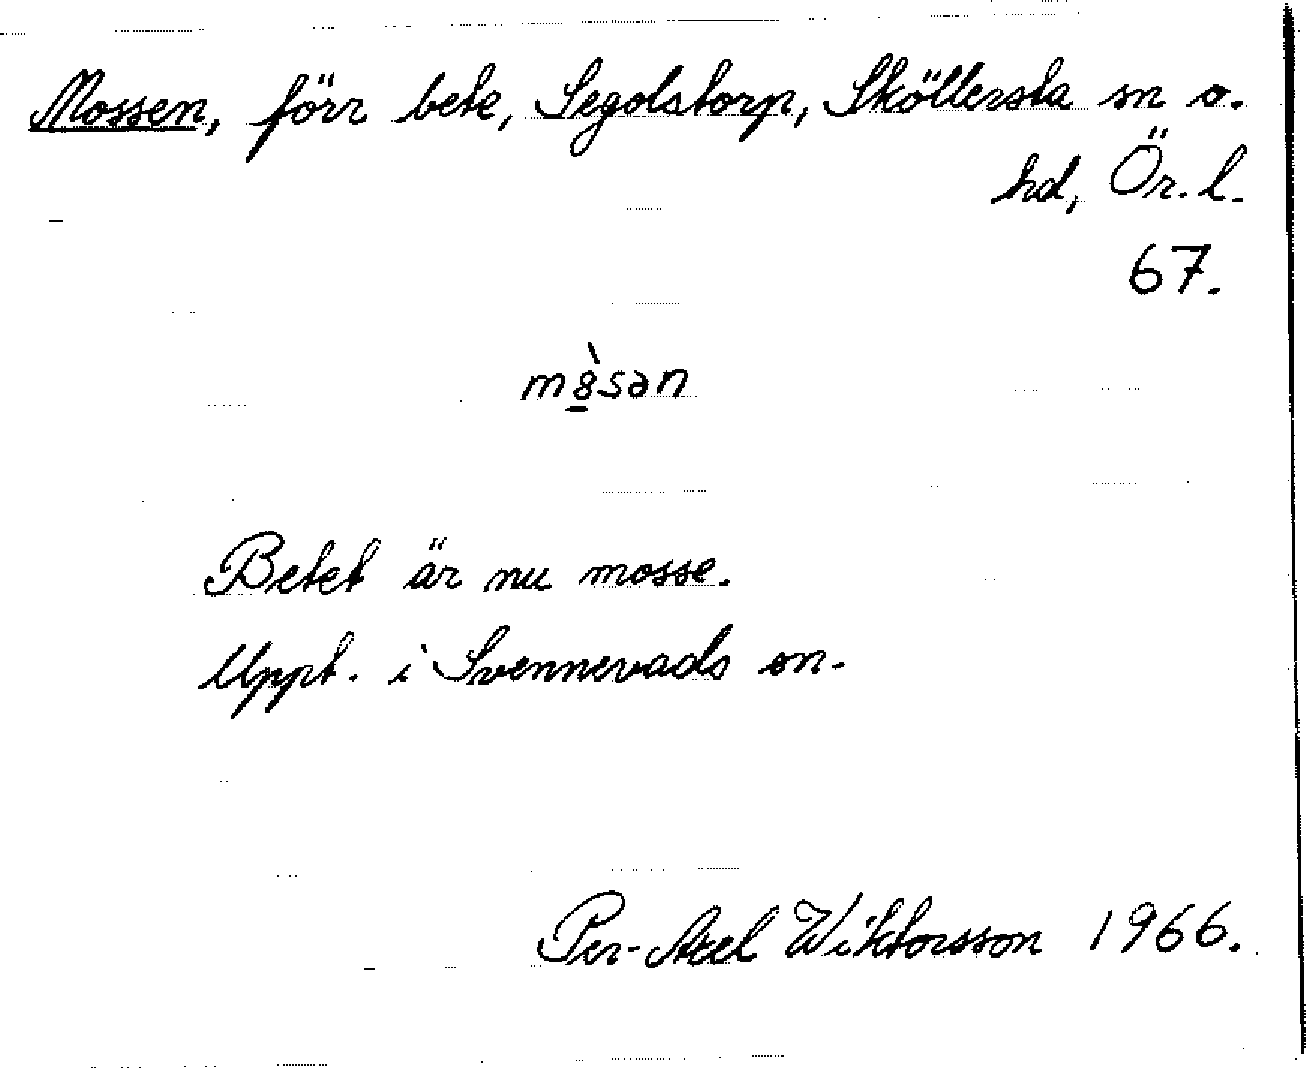 Mossen, förr bete, Segolstorp, Sköllersta sn o.
hd, Ör. l.
67.
m8̠̀sən
Betet är nu mosse.
Uppt. i Svennevads sn.
Per-Axel Wiktorsson 1966.